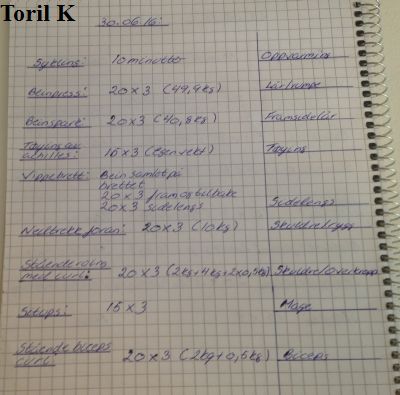 Toril K
30.06.16:
Sykling: 10 minutter Oppvarming
Beinpress: 20 x 3 (49,9kg) Lår/rumpe
Beinspark: 20 x 3 (40,8kg) Framside lår
Tøying av
achilles: 15 x 3 (egenvekt) Tøying
Vippebrett: Bein samlet på
brettet
20 x 3 fram og tilbake
20 x 3 sidelengs Sidelengs
Nedtrekk foran: 20 x 3 (10kg) Skuldre/rygg
Stående
med curl: 20 x 3 (2kg+4kg+2x0,5kg) Skuldre/overkropp
Situps: 15 x 3 Mage
Stående biceps
curl: 20 x 3 (2kg+0,5kg) Biceps